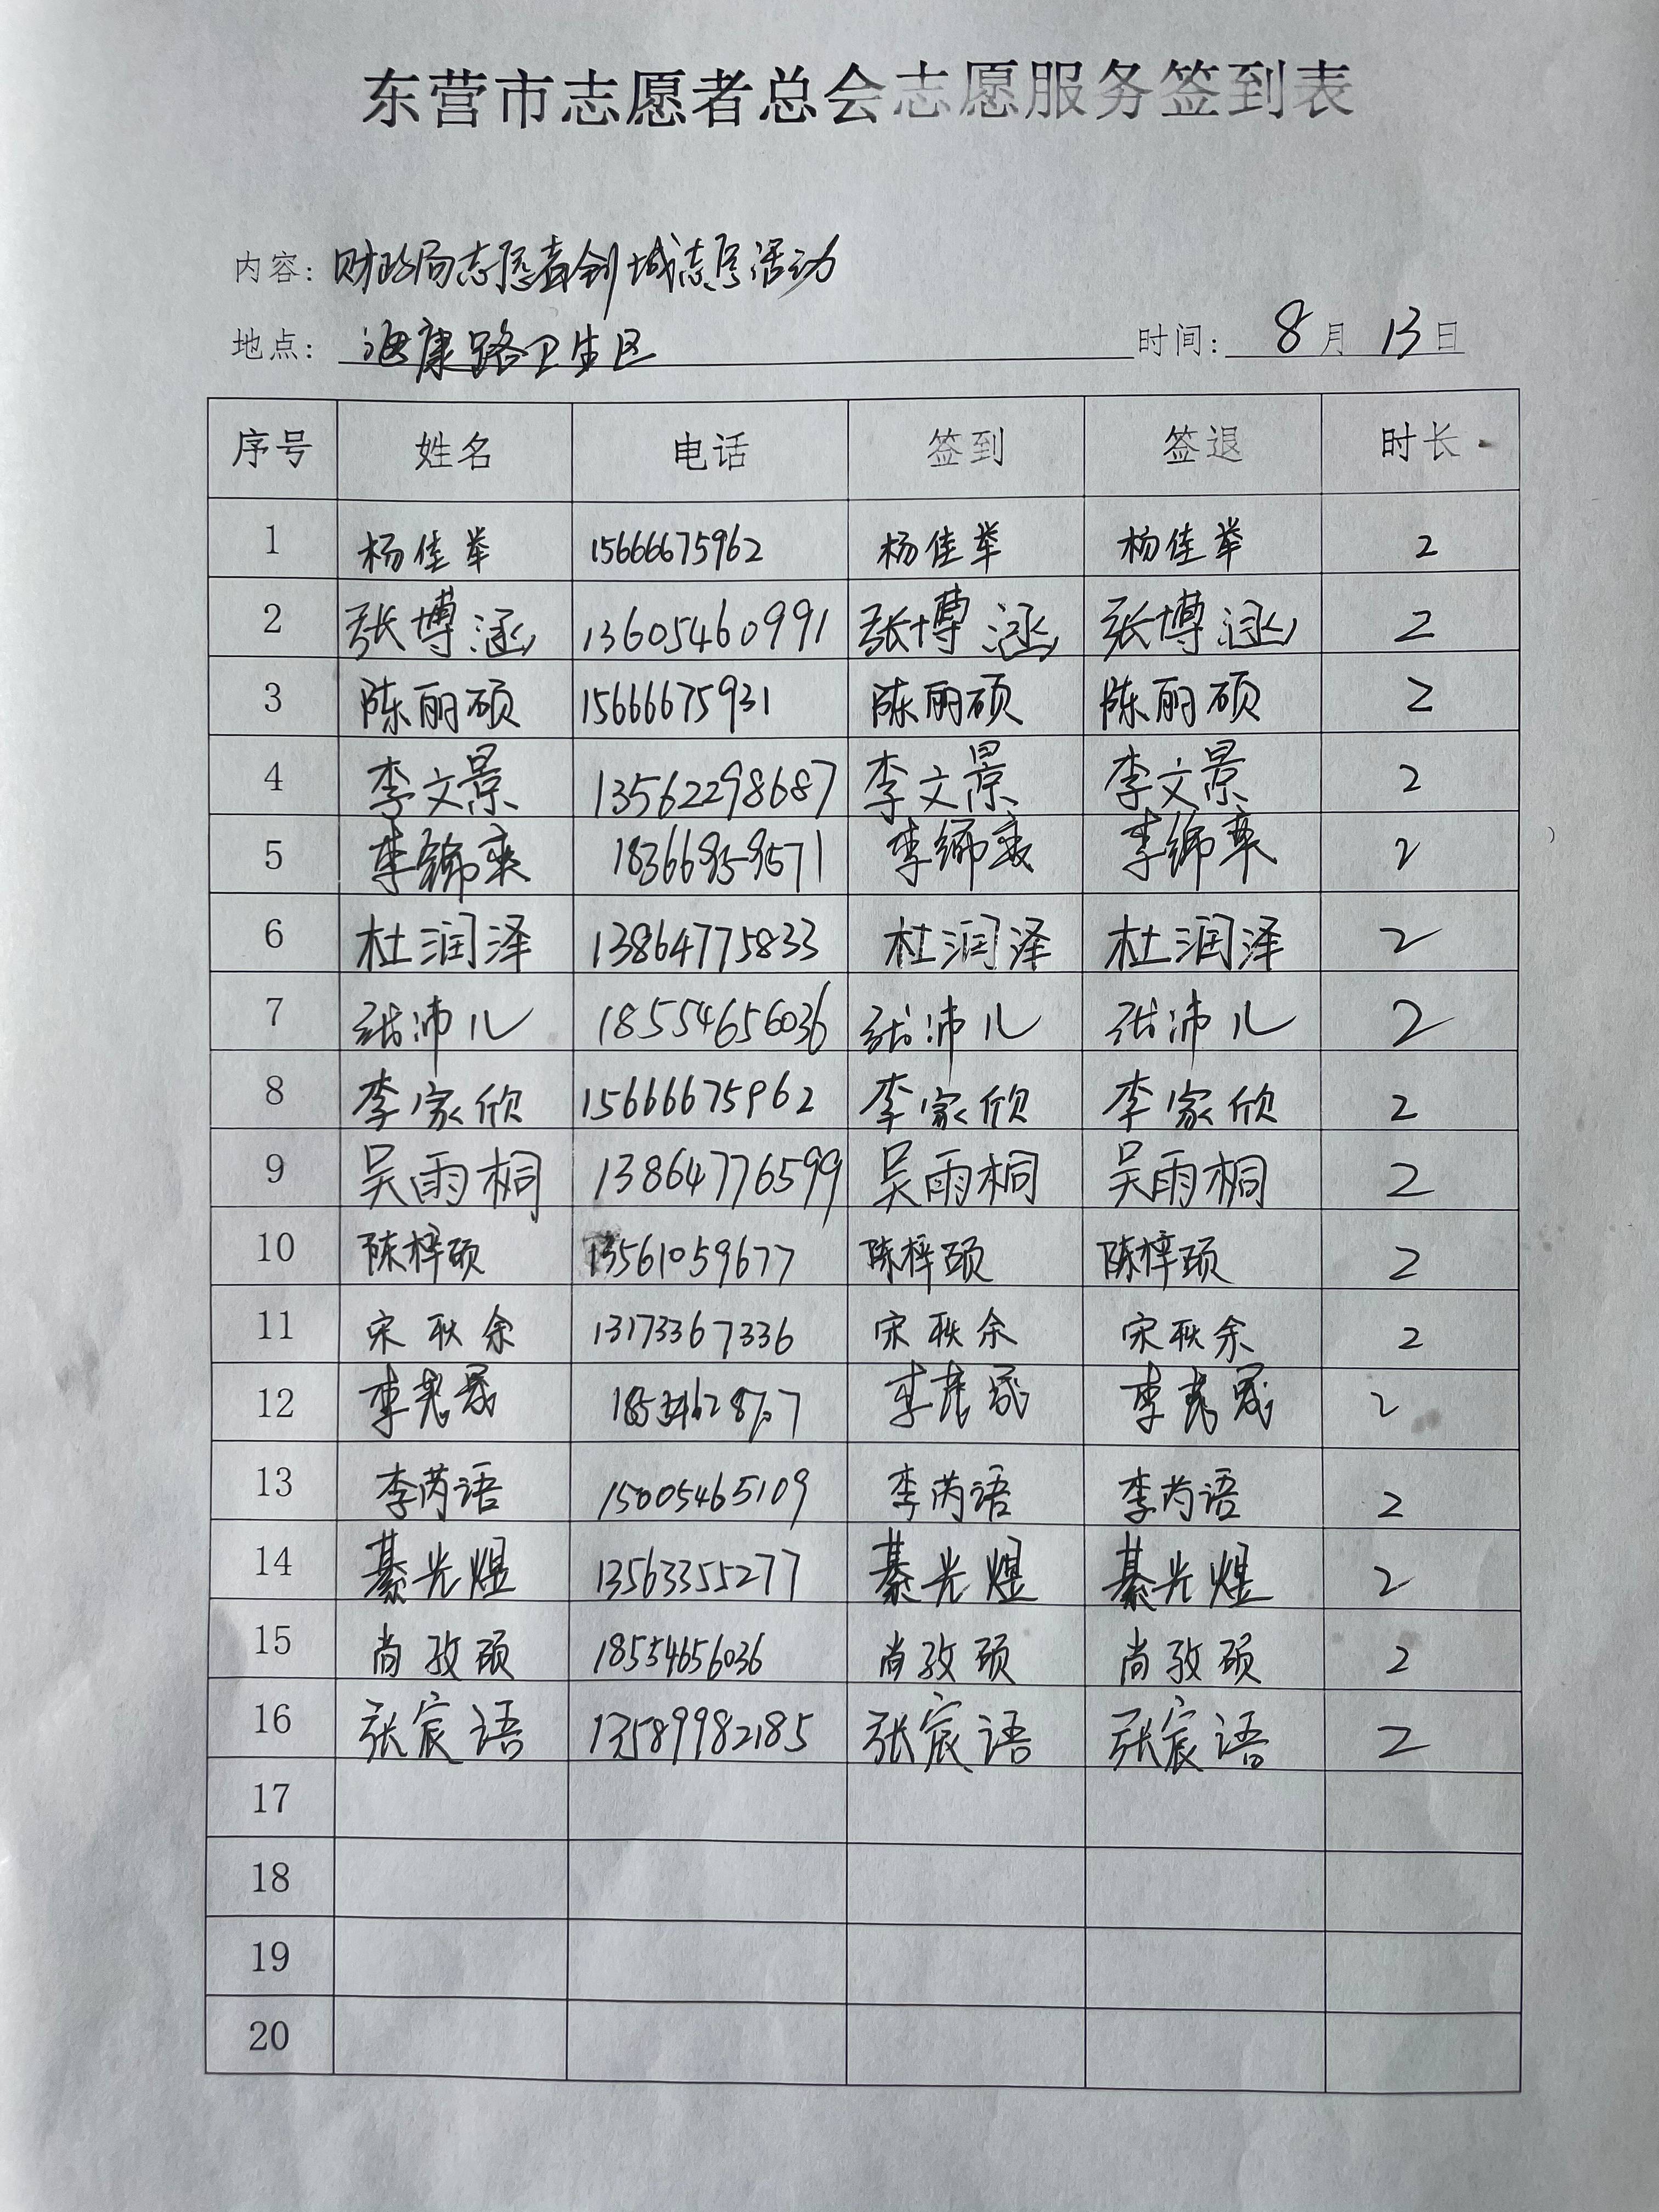 东营市志愿者总会志愿服务签到表
内容: 财政局志愿者创城志愿活动
地点: 海康路卫生区 时间: 8月13日
序号 姓名 电话 签到 签退 时长
1 杨佳举 15666675962 杨佳举 杨佳举 2
2 张博涵 13605460991 张博涵 张博涵 2
3 陈丽硕 15666675931 陈丽硕 陈丽硕 2
4 李文景 13562298687 李文景 李文景 2
5 李锦奕 18366959571 李锦奕 李锦奕 2
6 杜润泽 13864775833 杜润泽 杜润泽 2
7 张沛儿 18554656036 张沛儿 张沛儿 2
8 李家欣 15666675962 李家欣 李家欣 2
9 吴雨桐 13864776599 吴雨桐 吴雨桐 2
10 陈梓硕 13561059677 陈梓硕 陈梓硕 2
11 宋秋余 13173367336 宋秋余 宋秋余 2
12 2
13 李芮语 15005465109 李芮语 李芮语 2
14 綦光煜 13563355277 綦光煜 綦光煜 2
15 尚孜硕 18554656036 尚孜硕 尚孜硕 2
16 张宸语 13589982185 张宸语 张宸语 2
17
18
19
20